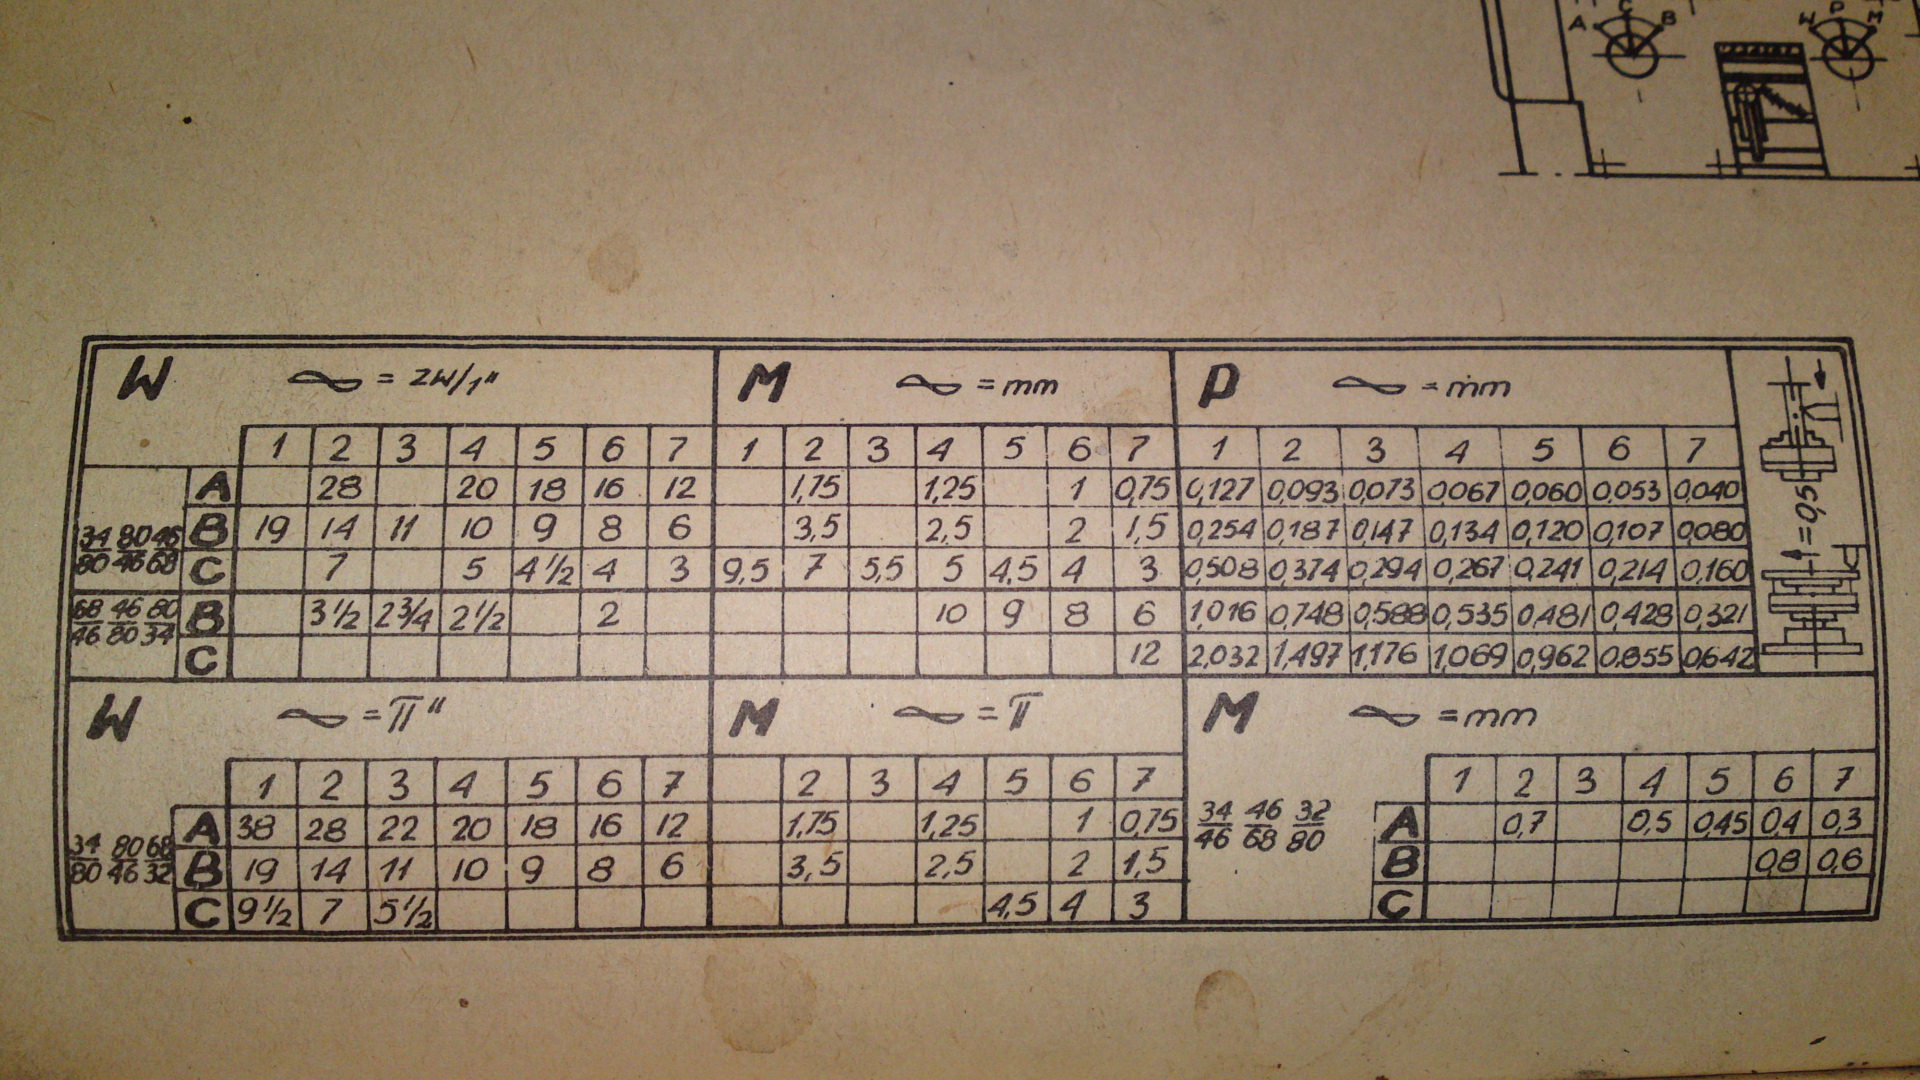 A C B W P M
W = ZW/1" M = mm P = mm
1 2 3 4 5 6 7 1 2 3 4 5 6 7 1 2 3 4 5 6 7
A 28 20 18 16 12 1,75 1,25 1 0,75 0,127 0,093 0,073 0,067 0,060 0,053 0,040
34/80 80/46 46/68 B 19 14 11 10 9 8 6 3,5 2,5 2 1,5 0,254 0,187 0,147 0,134 0,120 0,107 0,080
C 7 5 4 1/2 4 3 9,5 7 5,5 5 4,5 4 3 0,508 0,374 0,294 0,267 0,241 0,214 0,160
68/46 46/80 80/34 B 3 1/2 2 3/4 2 1/2 2 10 9 8 6 1,016 0,748 0,588 0,535 0,481 0,428 0,321
C 12 2,032 1,497 1,176 1,069 0,962 0,855 0,642
= 0,5
W = π" M = π M = mm
1 2 3 4 5 6 7 2 3 4 5 6 7 1 2 3 4 5 6 7
A 38 28 22 20 18 16 12 1,75 1,25 1 0,75 34/46 46/68 32/80 A 0,7 0,5 0,45 0,4 0,3
34/80 80/46 68/32 B 19 14 11 10 9 8 6 3,5 2,5 2 1,5 B 0,8 0,6
C 9 1/2 7 5 1/2 4,5 4 3 C